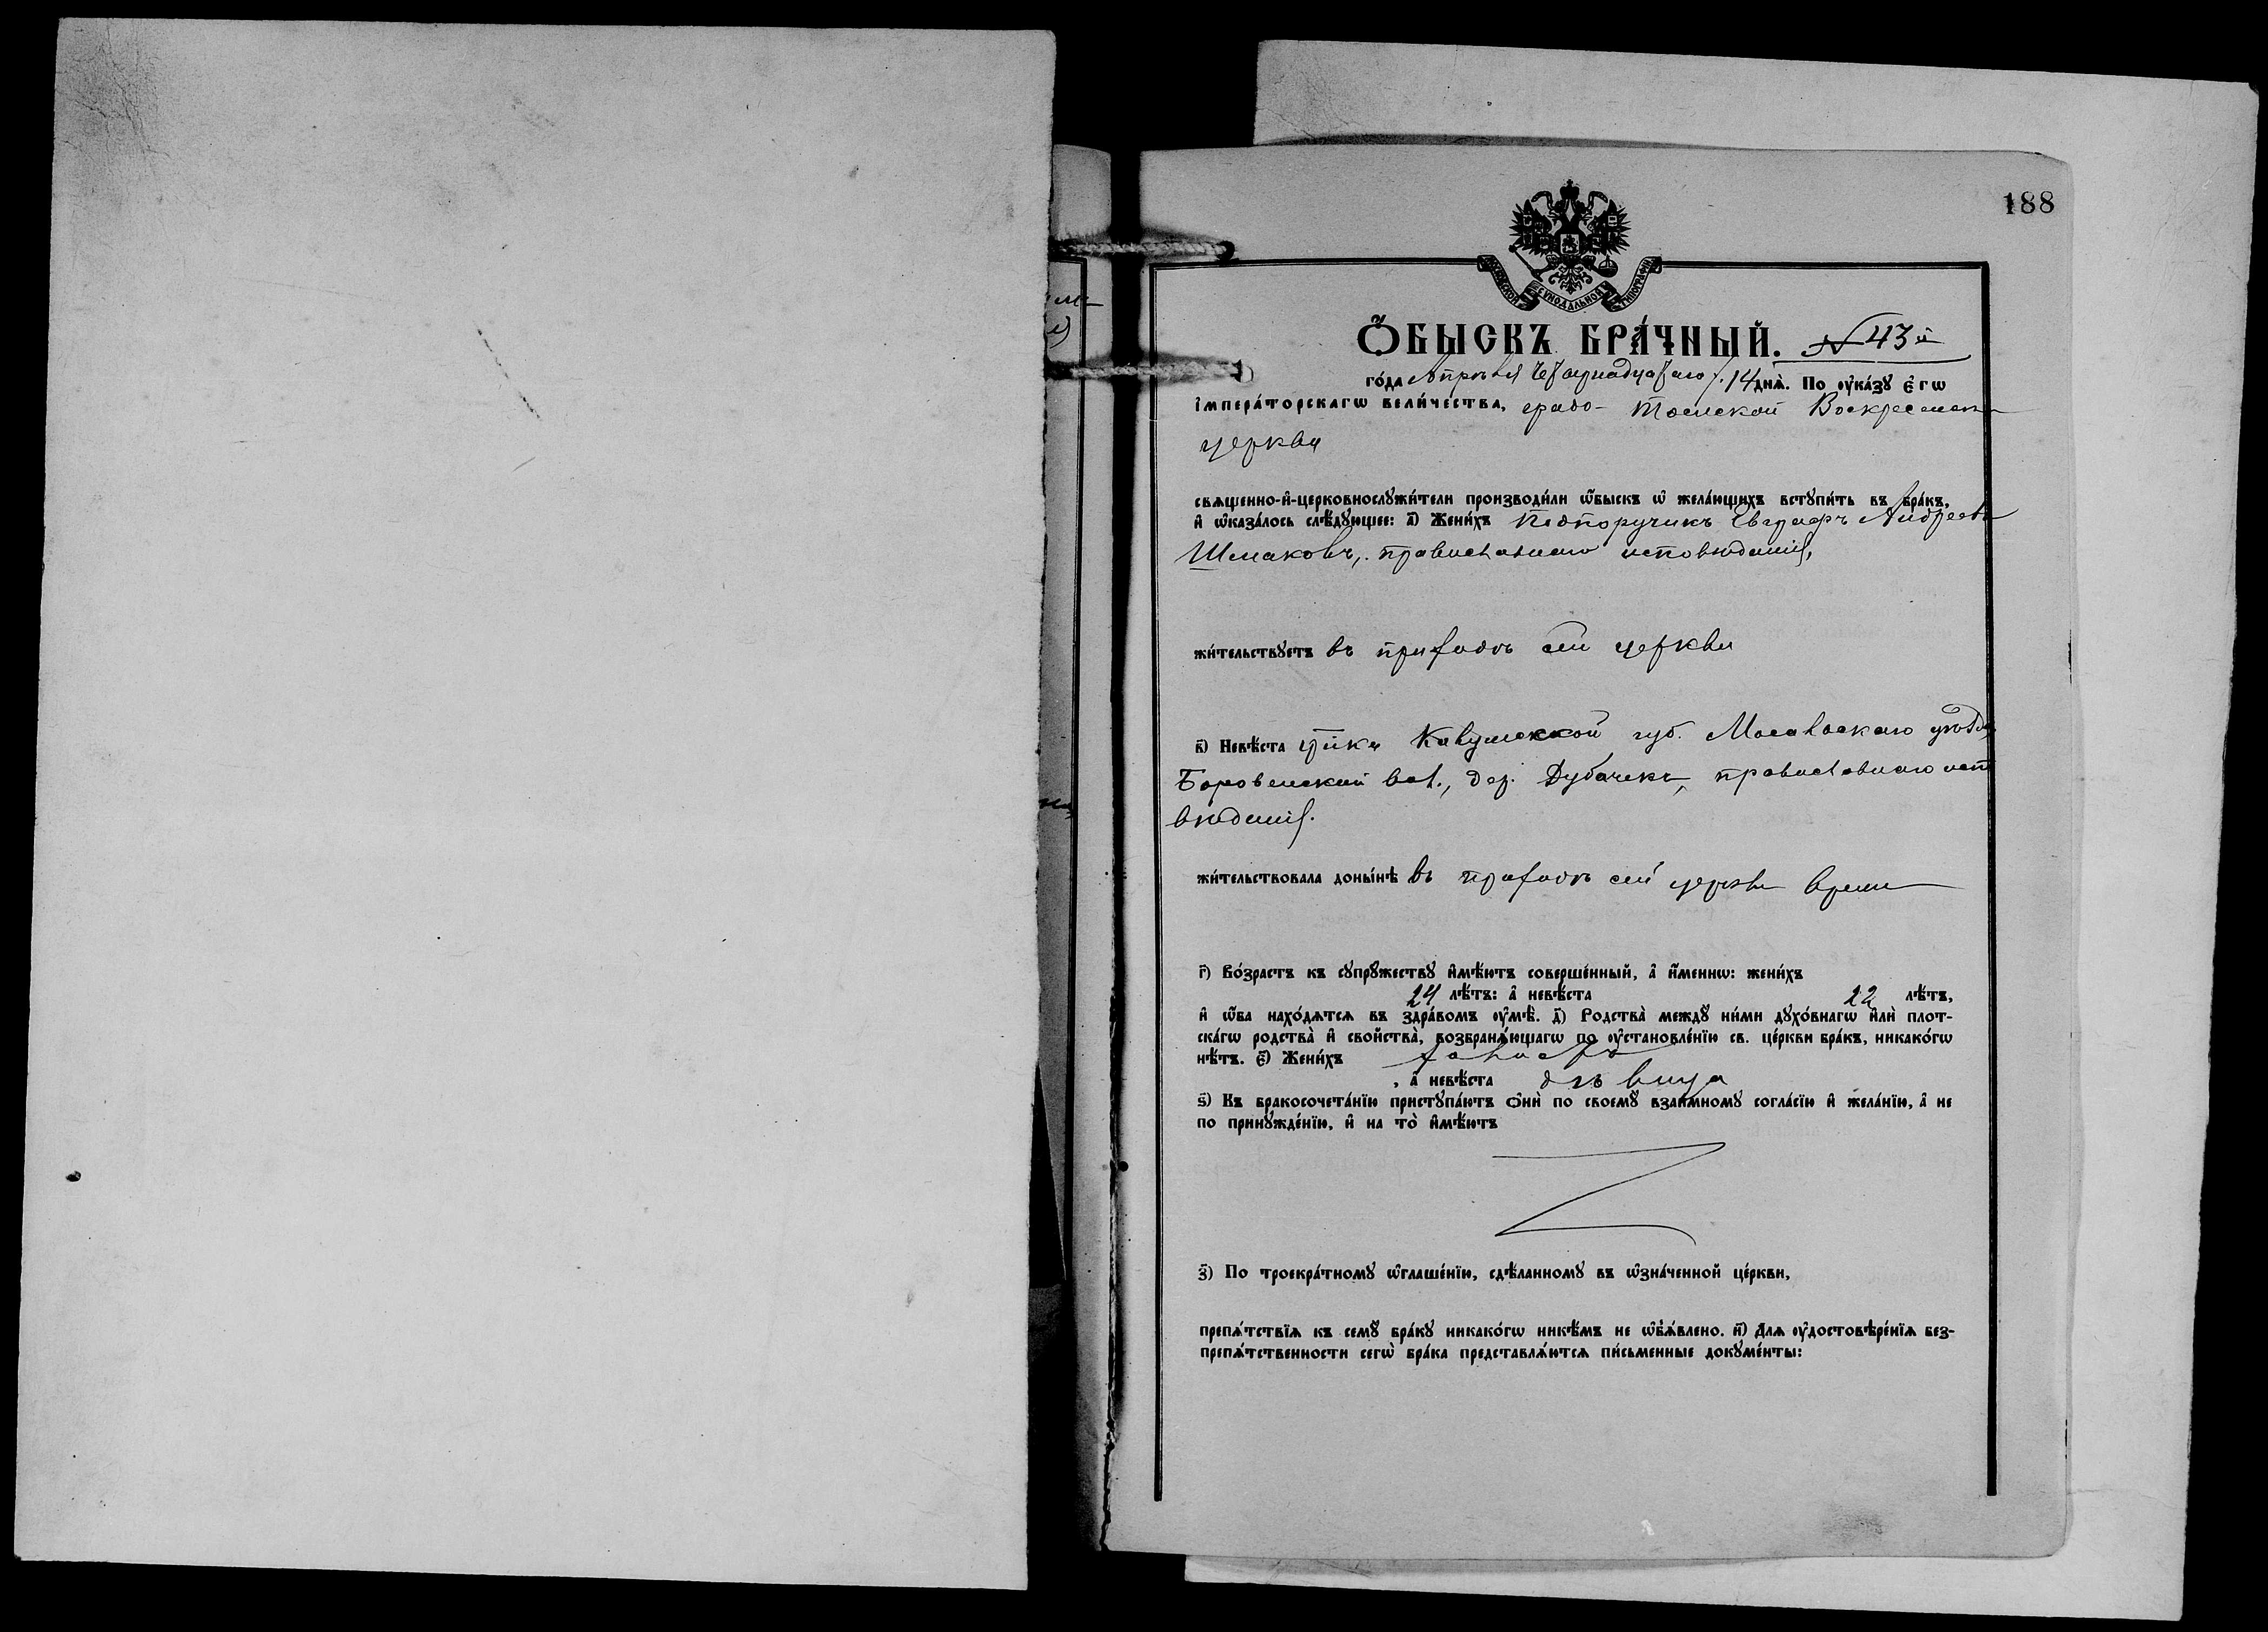 188
МОСКОВСКОЙ СѴНОДАЛЬНОЙ ТИПОГРАФІИ
Ѻ҆БЫСКЪ БРА́ЧНЫЙ. № 43й
го́да Апрѣля Четырнадцатаго /.14 днѧ̀. По ᲂу҆ка́зꙋ Є҆гѡ
І҆мпера́торскагѡ Вели́чества, градо-Томской Воскресенск
церкви
свѧщенно-и҆-церковнослꙋжи́тели производи́ли ѡ҆́быскъ ѡ҆ жела́ющихъ встꙋпи́ть въ бра́къ,
и҆ ѡ҆каза́лось слѣ́дꙋющее: а҃) Жени́хъ Подпоручикъ Евграфъ Андреевъ
Шмаковъ, православнаго исповѣданія,
жи́тельствꙋетъ въ приходѣ сей церкви
в҃) Невѣ́ста гр-нка Калужской губ. Мосальскаго уѣзда,
вол., дер. православнаго испо
вѣданія.
жи́тельствовала доны́нѣ въ приходѣ сей церкви
г҃) Во́зрастъ къ сꙋпрꙋ́жествꙋ и҆мѣ́ютъ соверше́нный, а҆ и҆́меннѡ: жени́хъ
24 лѣ́тъ: а҆ невѣ́ста 22 лѣ́тъ,
и҆ ѡ҆́ба нахо́дѧтсѧ въ здра́вомъ ᲂу҆мѣ̀. д҃) Родства̀ междꙋ̀ ни́ми дꙋхо́внагѡ и҆лѝ плот-
ска́гѡ родства̀ и҆ свойства̀, возбранѧ́ющагѡ по ᲂу҆становле́нїю св. це́ркви бра́къ, никако́гѡ
нѣ́тъ. є҃) Жени́хъ холостъ
, а҆ невѣ́ста дѣвица
ѕ҃) Къ бракосочета́нїю пристꙋпа́ютъ ѻ҆нѝ по своемꙋ̀ взаи́мномꙋ согла́сїю и҆ жела́нїю, а҆ не
по принꙋжде́нїю, и҆ на то̀ и҆мѣ́ютъ
з҃) По троекра́тномꙋ ѡ҆глаше́нїю, сдѣ́ланномꙋ въ ѡ҆зна́ченной це́ркви,
препѧ́тствїѧ къ семꙋ̀ бра́кꙋ никако́гѡ никѣ́мъ не ѡ҆б̾ѧ́влено. и҃) Длѧ ᲂу҆достовѣре́нїѧ без-
препѧ́тственности сегѡ̀ бра́ка представлѧ́ютсѧ пи́сьменные докꙋме́нты: